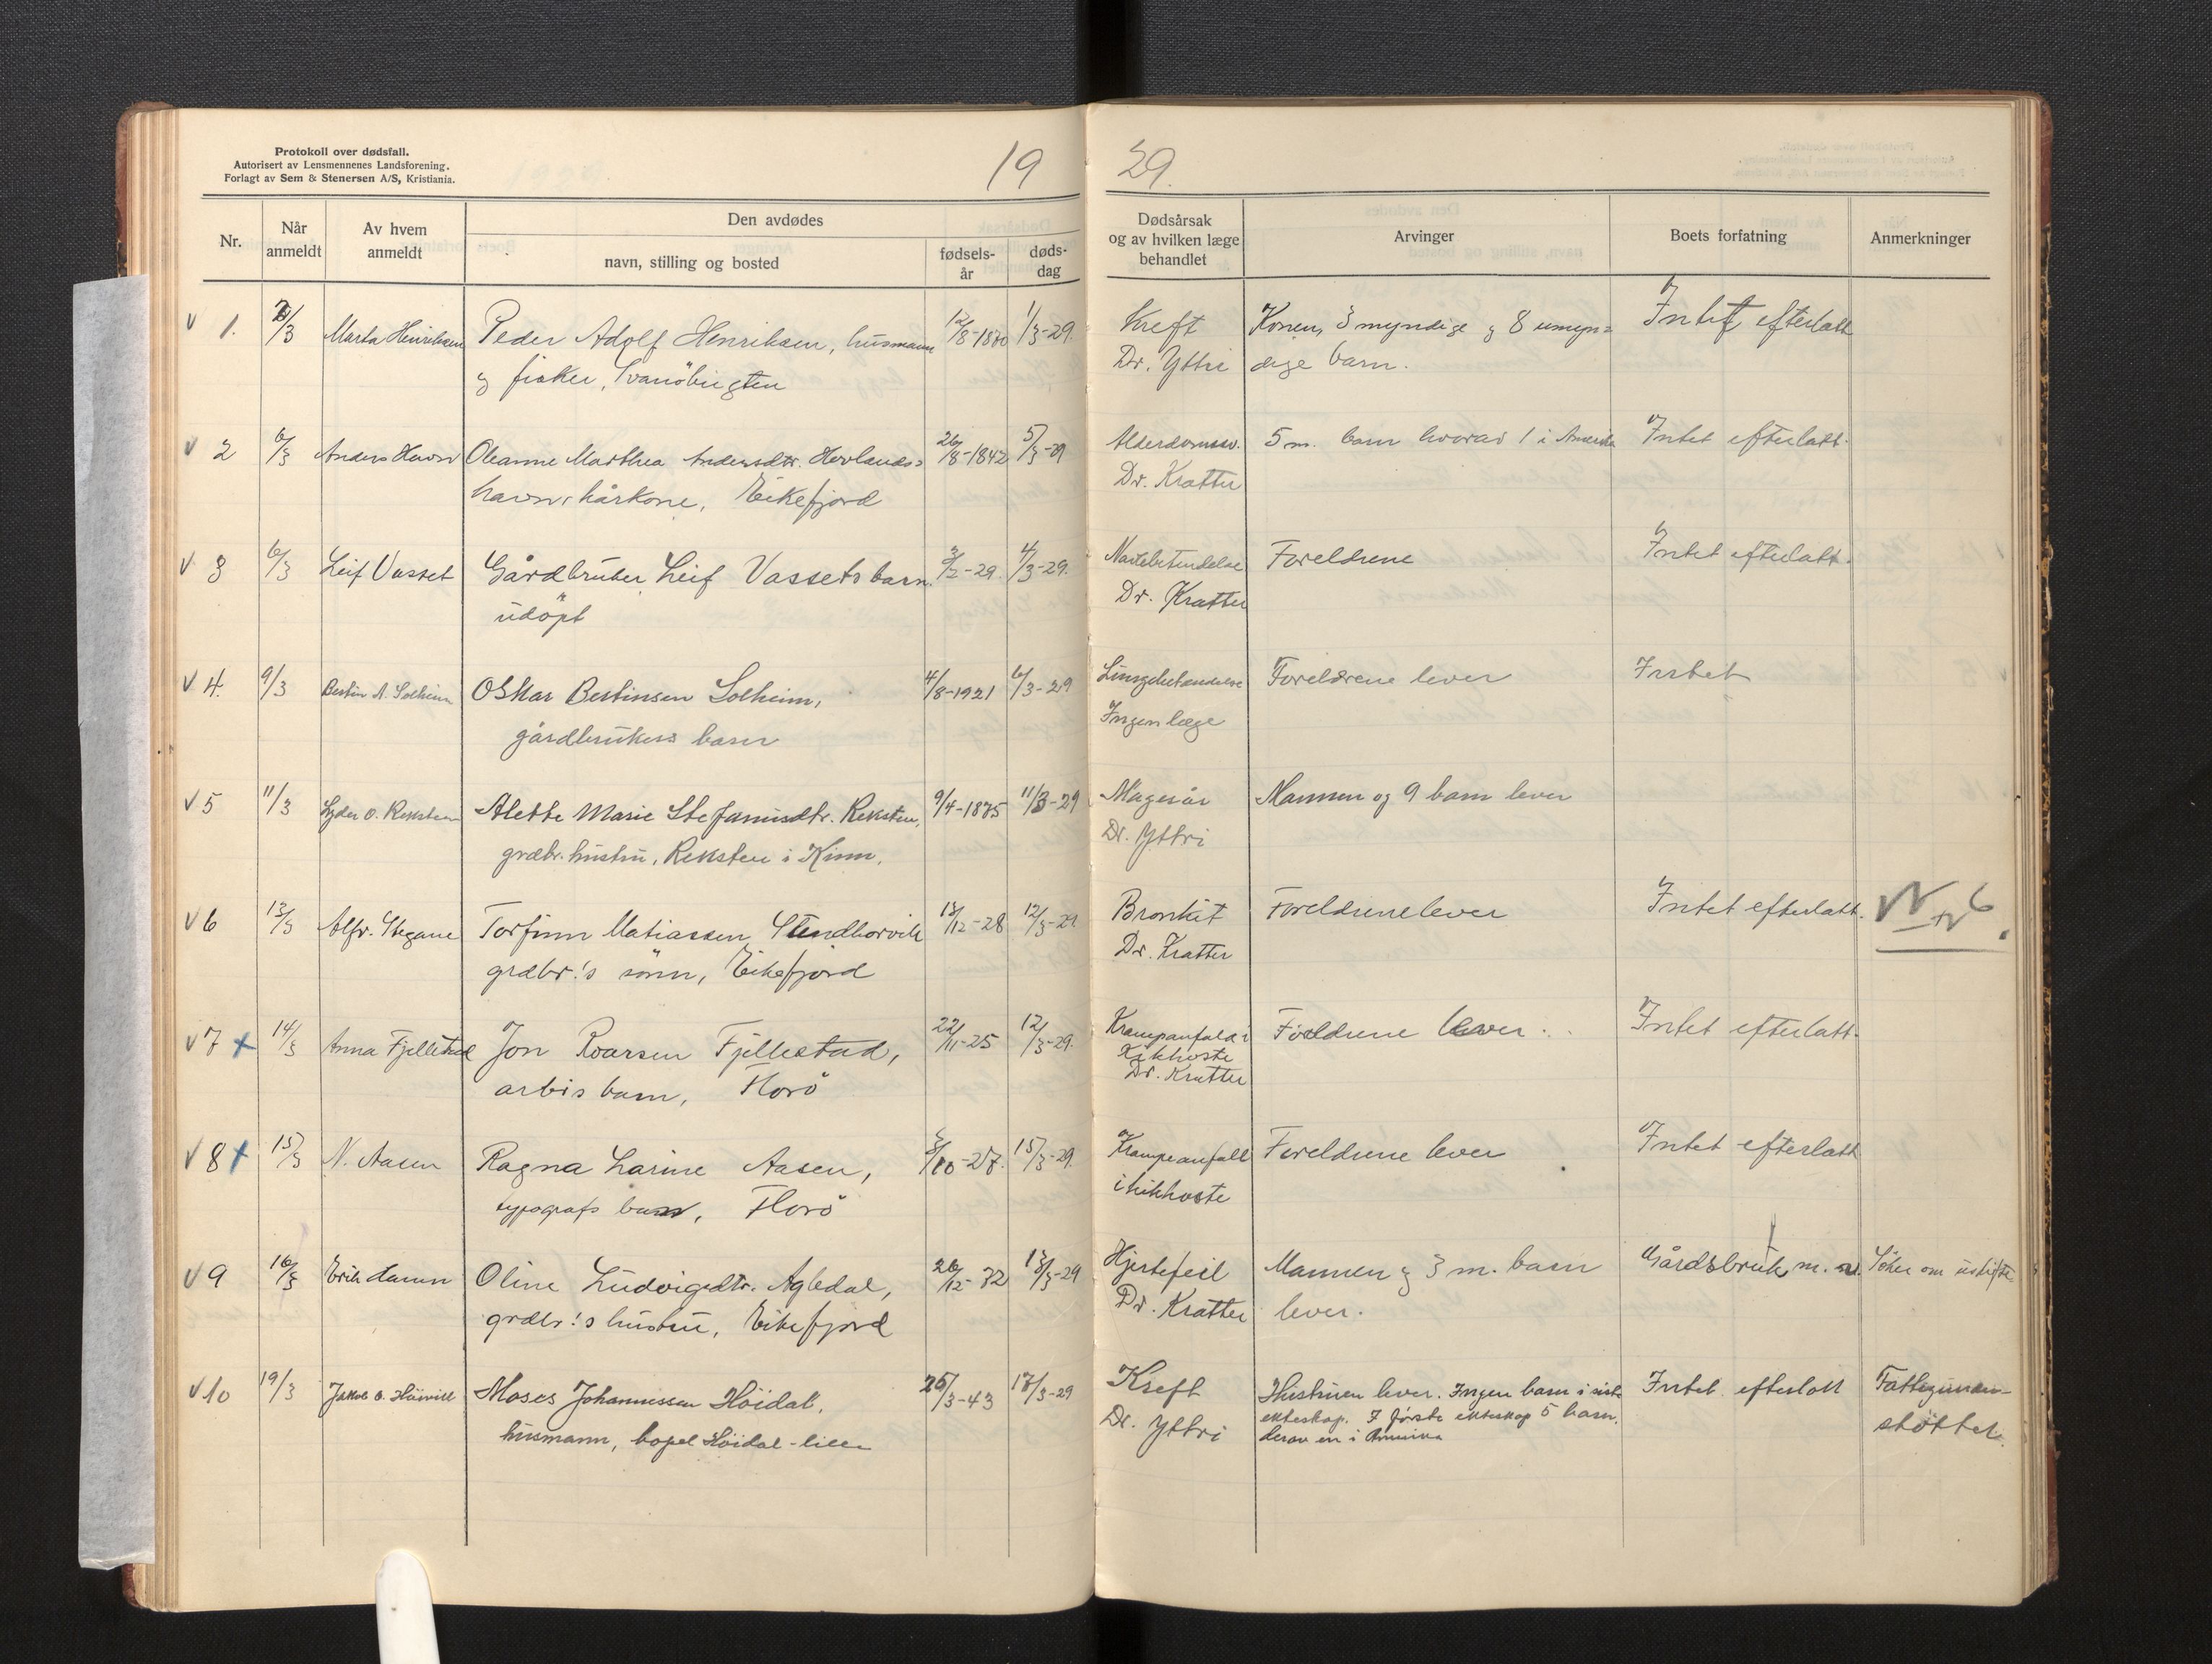 Protokoll over dødsfall.
Autorisert av Lensmennenes Landsforening.
Forlagt av Sem & Stenersen A/S, Kristiania.
19 29.
Nr.
Når anmeldt
Av hvem anmeldt
Den avdødes
navn, stilling og bosted
fødsels-år
døds-dag
Dødsårsak og av hvilken læge behandlet
Arvinger
Boets forfatning
Anmerkninger
v 1. /3 Marta Henriksen Peder Adolf Henriksen, husmann 12/8-1870 1/3-29. Kreft Konen, 3 myndige og 8 umyn= Intet efterlatt
og fisker, Svanöbugten Dr. Yttri dige barn.
v 2 6/3 Anders Havn Oleanne Marthea Andersdtr. Hovlands= 26/8-1842 5/3-29 Alderdomssv. 5 m. barn hvorav 1 i Amerika Intet efterlatt.
havn, kårkone, Eikefjord Dr. Kratter
v 3 6/3 Leif Vasset Gårdbruker Leif Vassets barn 3/2-29. 4/3-29. Navlebetendelse Foreldrene Intet efterlatt.
udöpt Dr. Kratter
v 4. 9/3 Bestin A. Solheim Oskar Bestinsen Solheim, 4/8-1921 6/3-29 Lungebetendelse Foreldrene lever Intet
gårdbrukers barn Ingen læge
v 5 11/3 Lyder O. Reksten Alette Marie Stefanusdtr. Reksten, 9/4-1875 11/3-29 Magesår Mannen og 9 barn lever
grdbr. hustru, Reksten i Kinn. Dr. Yttri
v 6 13/3 Alfr. Stegane Torfinn Matiassen 13/12-28 12/3-29 Bronkit Foreldrene lever Intet efterlatt. 6
grdbr.'s sönn, Eikefjord Dr. Kratter
v 7 + 14/3 Anna Fjellestad Jon Roarsen Fjellestad, 22/11-25 12/3-29. Krampanfald i Foreldrene lever. Intet efterlatt.
arbis barn, Florö Kikhoste
Dr. Kratter
v 8 + 15/3 N. Aasen Ragna Larine Aasen, /10-27. 15/3-29. Krampeanfall Foreldrene lever Intet efterlatt
typografs barn, Florö i kikhoste
v 9 16/3 Erik Havn Oline Ludvigsdtr. Agledal, 26/12-72 13/3-29 Hjertefeil Mannen og 3 m. barn Gårdsbruk m. Söker om uskifte
grdbr.'s hustru, Eikefjord Dr. Kratter lever.
v 10 19/3 Jakob O. Höivik Moses Johannessen Höidal, 25/3-43 17/3-29 Kreft Hustruen lever. Ingen barn i siste Intet efterlatt Fattigunder-
husmann, bopel Höidal-lien Dr. Yttri ekteskap. I förste ekteskap 5 barn. stöttet.
derav en i Amerika